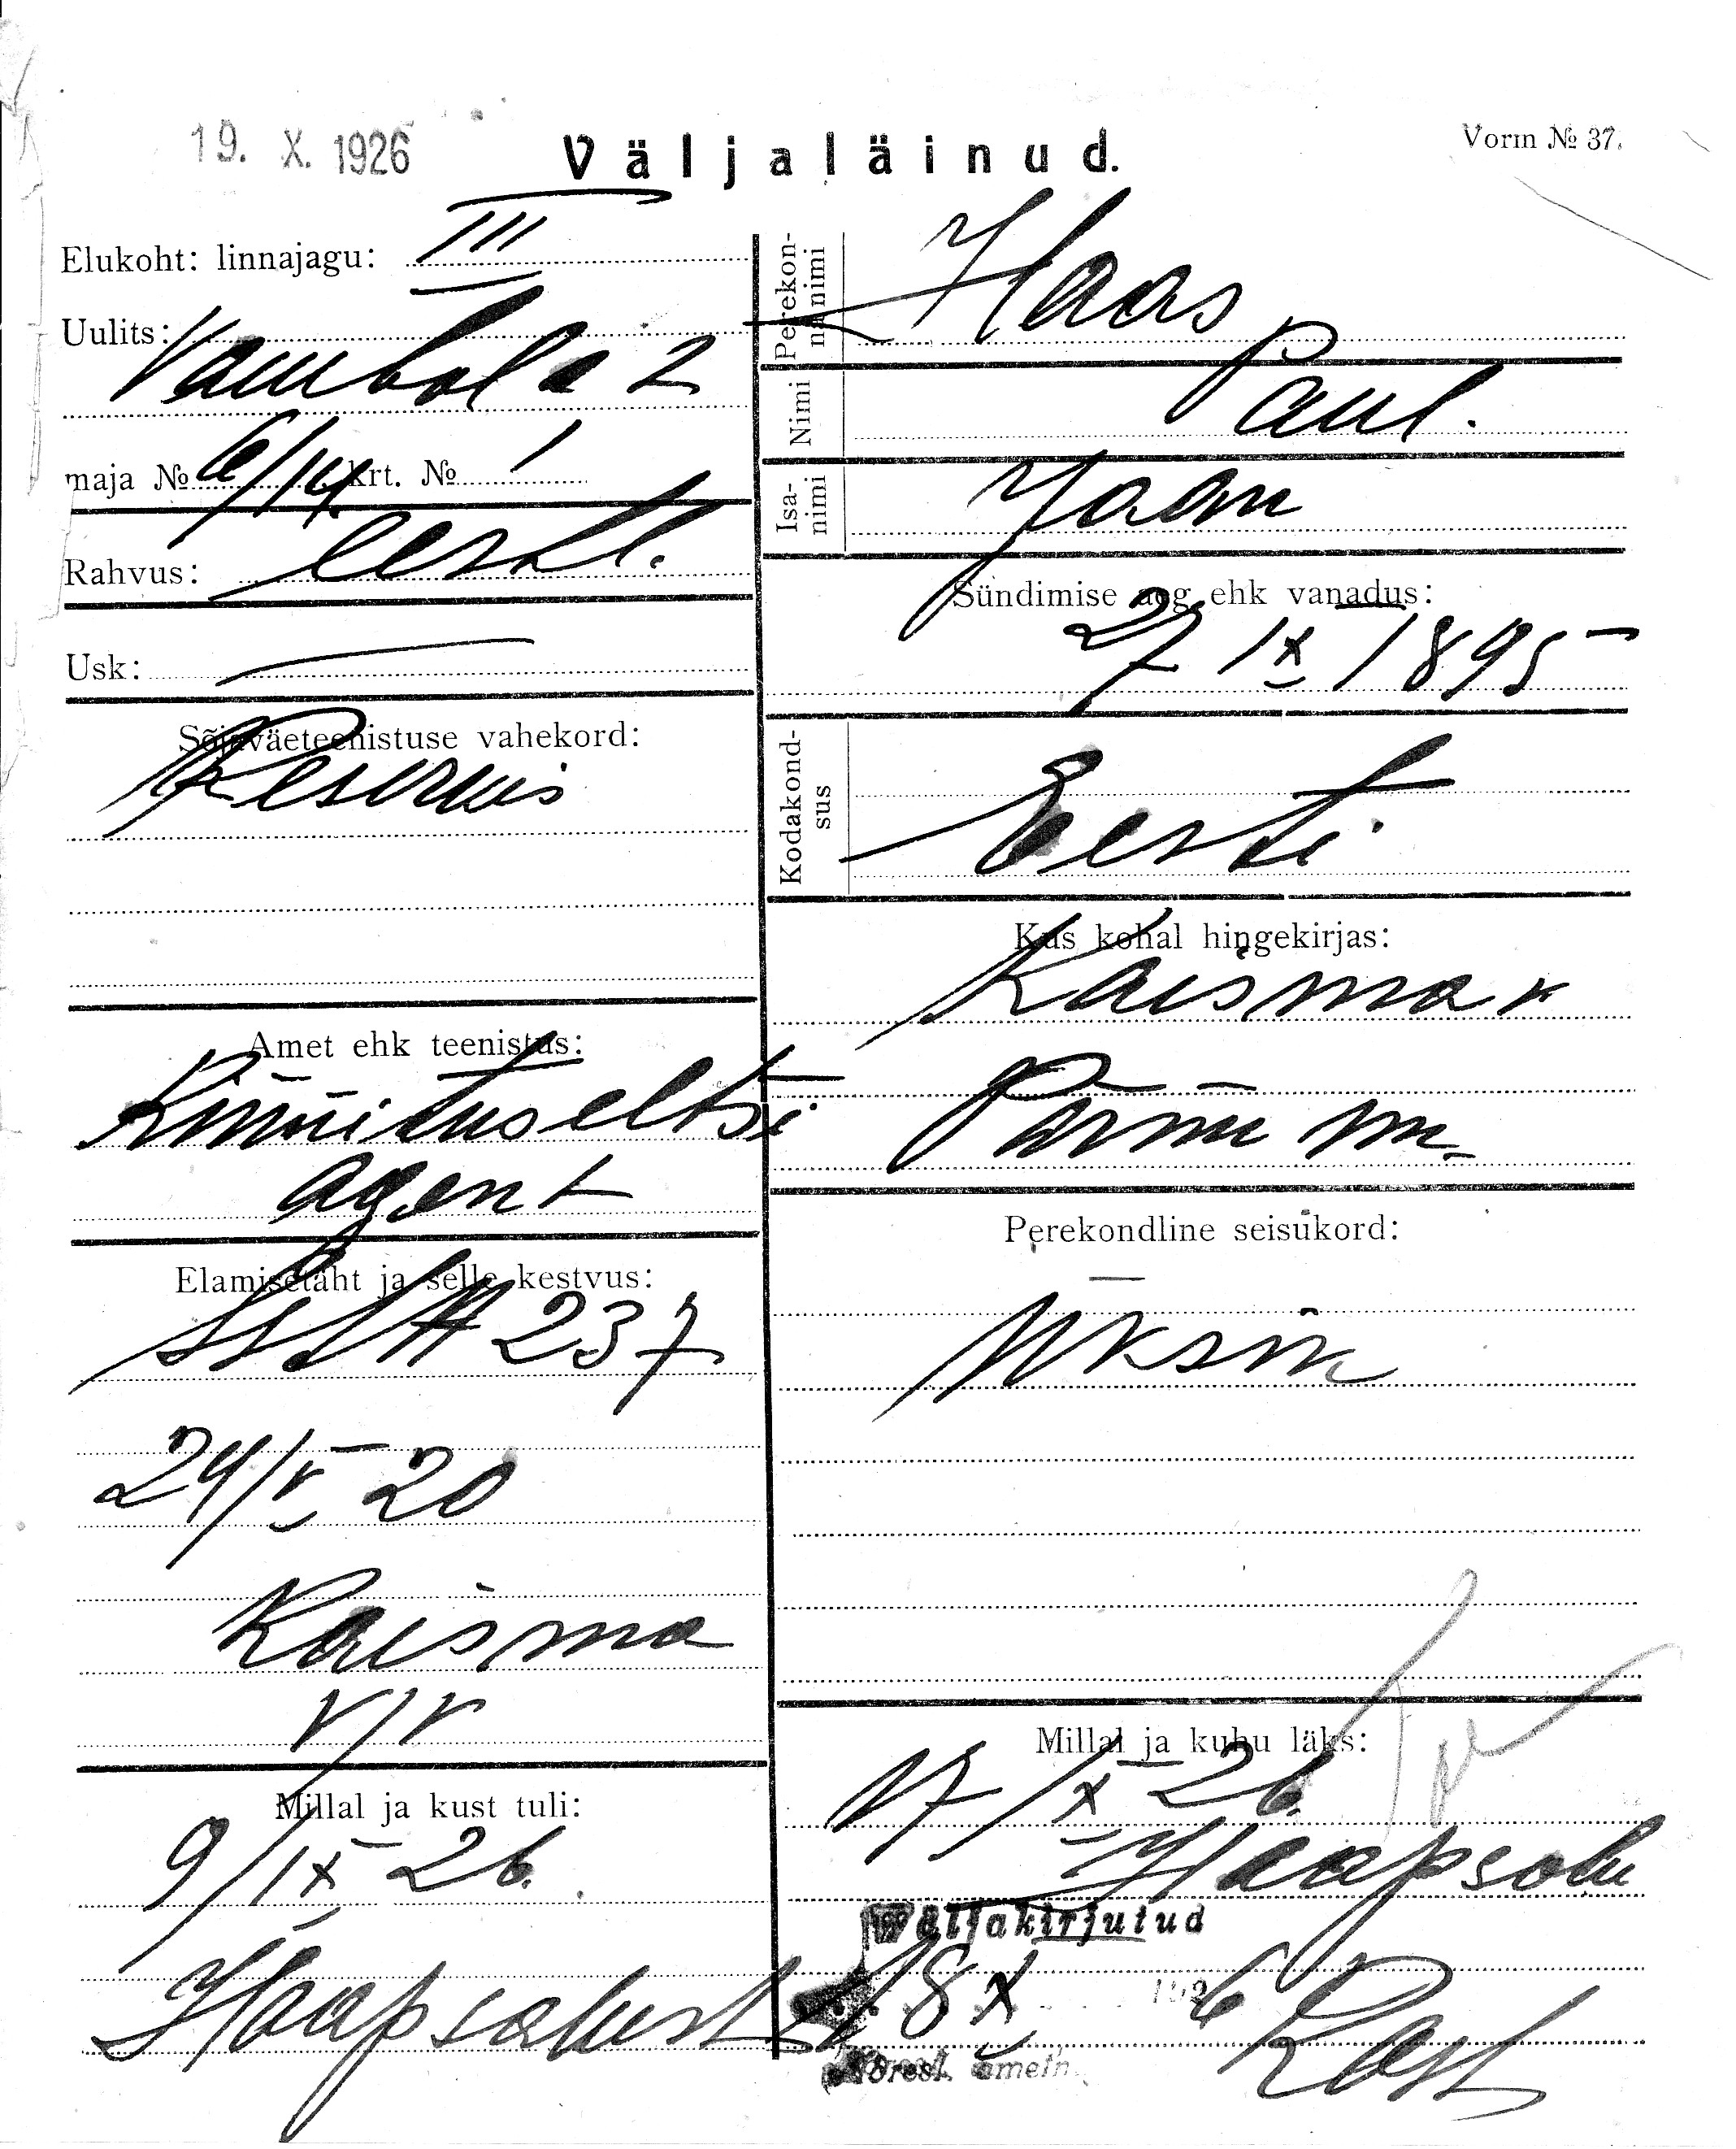 19. X. 1926
Väljaläinud.
Vorm № 37.
Elukoht: linnajagu: III
Uulits:
Vambola 2
maja № 6/14 krt. № 1
Rahvus: eestl.
Usk: —
Sõjaväeteenistuse vahekord:
Reservis
Amet ehk teenistus:
Kinnituseltsi
agent
Elamisetäht ja selle kestvus:
237
24/V 20
Kaisma
v/v
Millal ja kust tuli:
9/IX 26.
Haapsalust
Perekonnanimi
Haas
Nimi
Paul.
Isanimi
Jaan
Sündimise aeg ehk vanadus:
27 IX 1895
Kodakondsus
Eesti
Kus kohal hingekirjas:
Kaisma v
Pärnu m.
Perekondline seisukord:
Üksik
Millal ja kuhu läks:
17/X 26.
Haapsalu
Väljakirjutud
18 X 1926